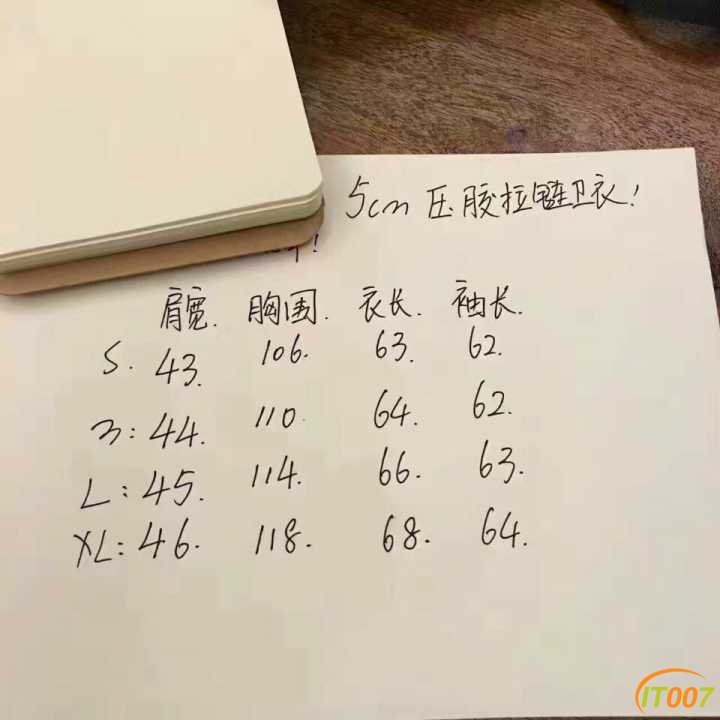 5cm 压胶拉链卫衣!
!
肩宽. 胸围. 衣长. 袖长.
S. 43. 106. 63. 62.
m: 44. 110 64. 62.
L: 45. 114. 66. 63.
XL: 46. 118. 68. 64.
IT007